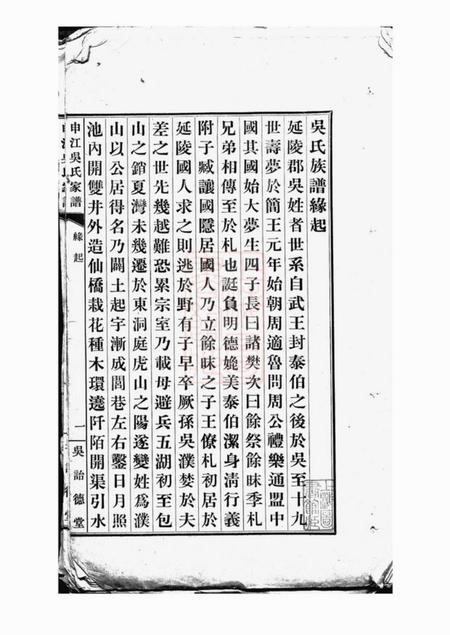 吳氏族譜緣起
延陵郡吳姓者世系自武王封泰伯之後於吳至十九
世壽夢於簡王元年始朝周適魯問周公禮樂通盟中
國其國始大夢生四子長曰諸樊次曰餘祭餘昧季札
兄弟相傳至於札也誕負明德媲美泰伯潔身清行義
附子臧讓國隱居國人乃立餘昧之子王僚札初居於
延陵國人求之則逃於野有子早卒厥孫吳濮婪於夫
差之世先幾越難恐累宗室乃載母避兵五湖初至包
山之銷夏灣未幾遷於東洞庭虎山之陽遂變姓為濮
山以公居得名乃闢土起宇漸成閭巷左右鑿日月照
池內開雙井外造仙橋栽花種木環遶阡陌開渠引水
申江吳氏家譜
緣起
一
吳詒德堂